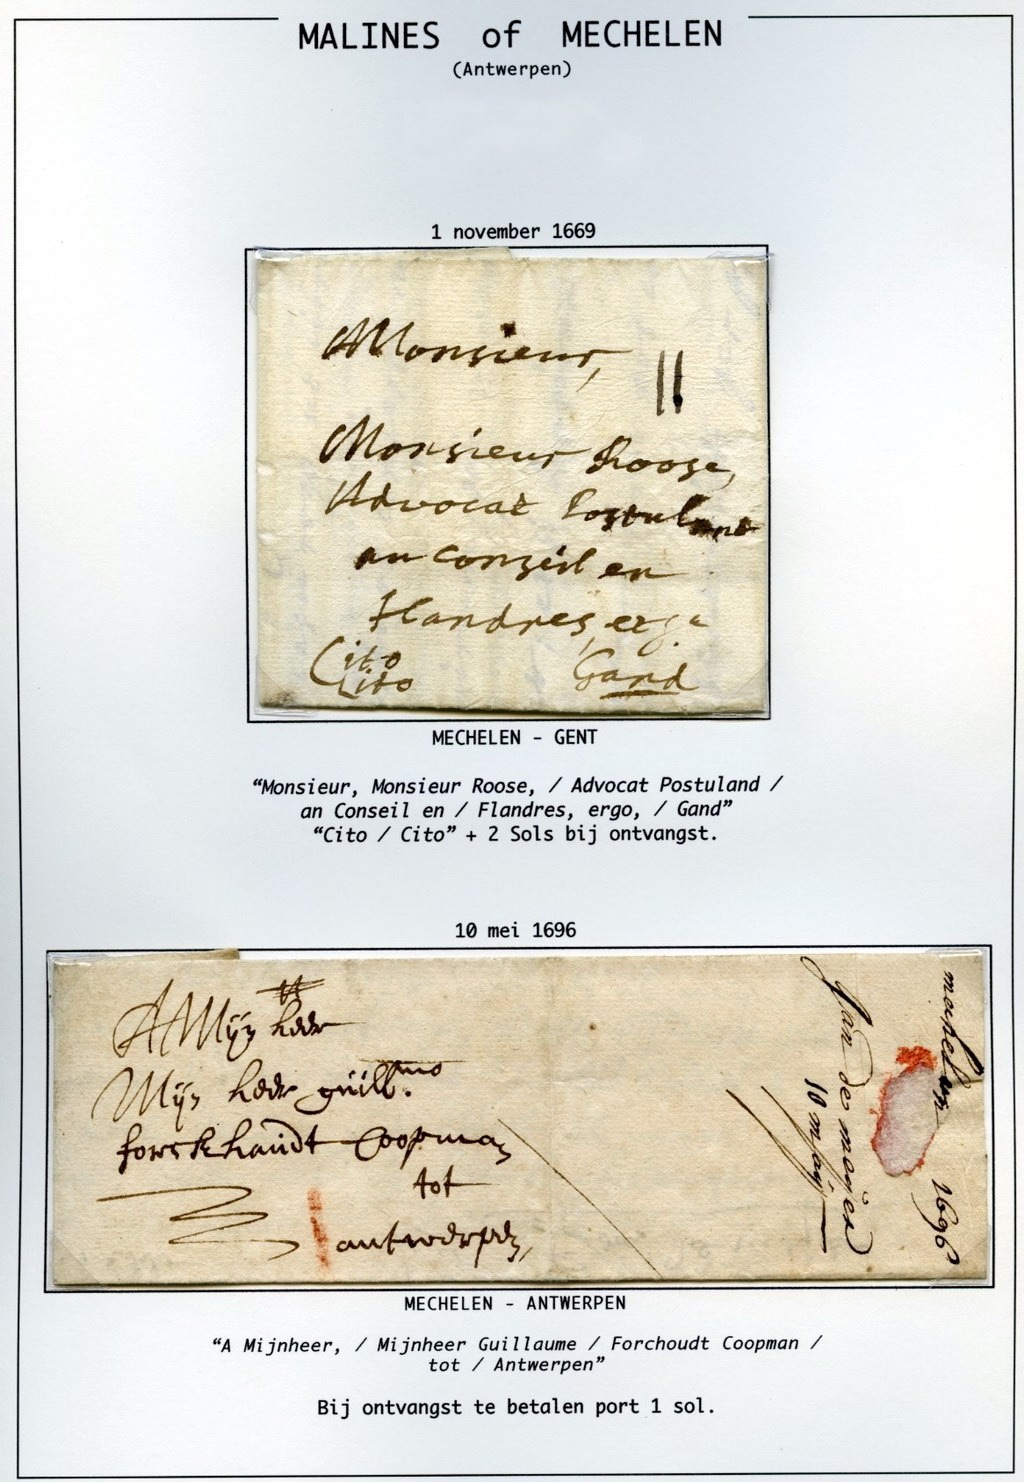 MALINES of MECHELEN
(Antwerpen)
1 november 1669
Monsieur,
Monsieur Roose,
Advocat Postuland
au Conseil en
Flandres, erga
Cito
Cito
Gand
MECHELEN - GENT
“Monsieur, Monsieur Roose, / Advocat Postuland /
an Conseil en / Flandres, ergo, / Gand”
“Cito / Cito” + 2 Sols bij ontvangst.
10 mei 1696
A Mijn heer
Mijn heer guillmo
forckhaudt Coopman
tot
antwerpen,
mechelen 1696
Jan de meyer
10 maij
MECHELEN - ANTWERPEN
“A Mijnheer, / Mijnheer Guillaume / Forchoudt Coopman /
tot / Antwerpen”
Bij ontvangst te betalen port 1 sol.